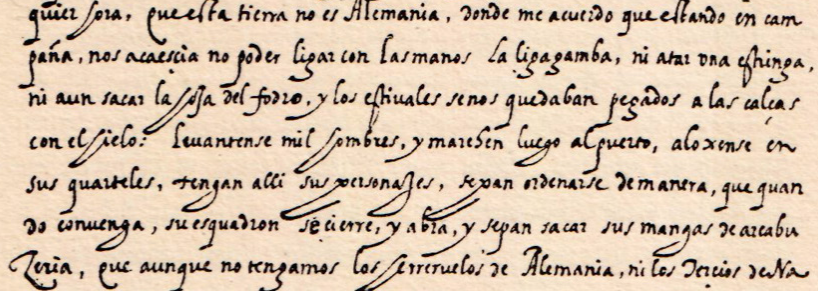 quier hora, que esta tierra no es Alemania, donde me acuerdo que estando en cam
paña, nos acaescia no poder ligar con las manos la ligagamba, ni atar vna estringa,
ni aun sacar la hoja del fodro, y los estivales se nos quedaban pegados a las calças
con el hielo: Levantense mil hombres, y marchen luego al puerto, aloxense en
sus quarteles, tengan alli sus personajes, sepan ordenarse de manera, que quan
do convenga, su esquadron se cierre, y abra, y sepan sacar sus mangas de arcabu
zeria, que aunque no tengamos los herreruelos de Alemania, ni los Tercios de Na